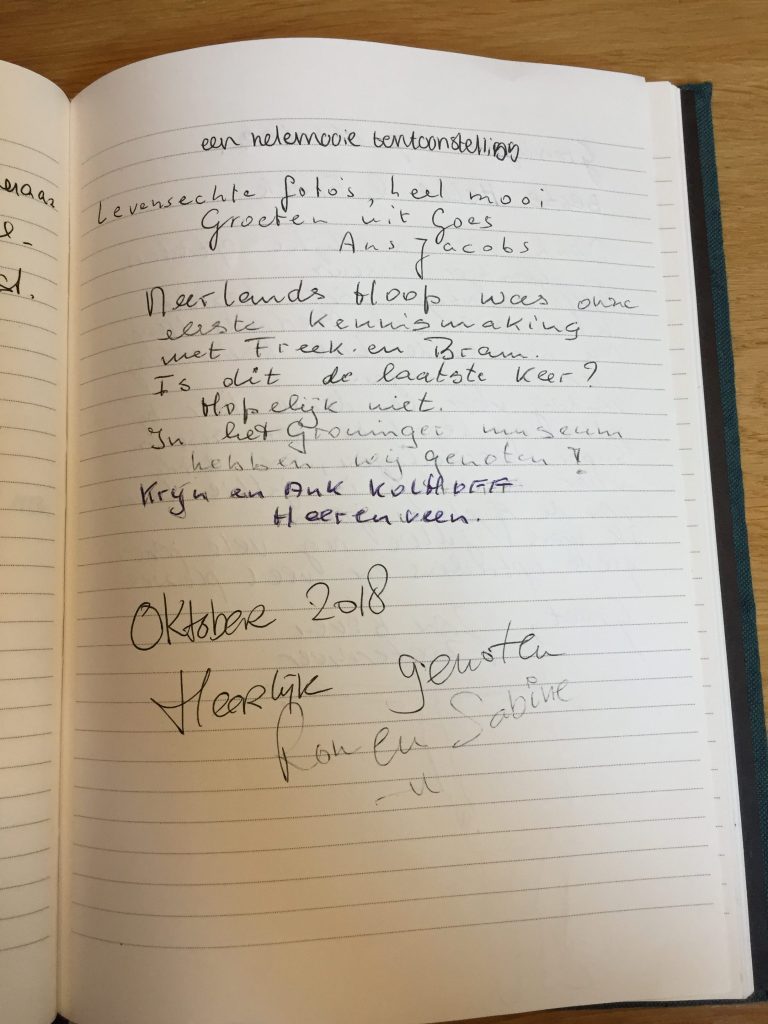 eraar
e-
st.
een helemooie tentoonstelling
Levensechte foto's, heel mooi
Groeten uit Goes
Ans Jacobs
Neerlands Hoop was onze
eerste kennismaking
met Freek en Bram.
Is dit de laatste keer?
Hopelijk niet.
In het Groninger museum
hebben wij genoten!
Krijn en Ank KOLHOFF
Heerenveen.
Oktober 2018
Heerlijk genoten
Ron en Sabine